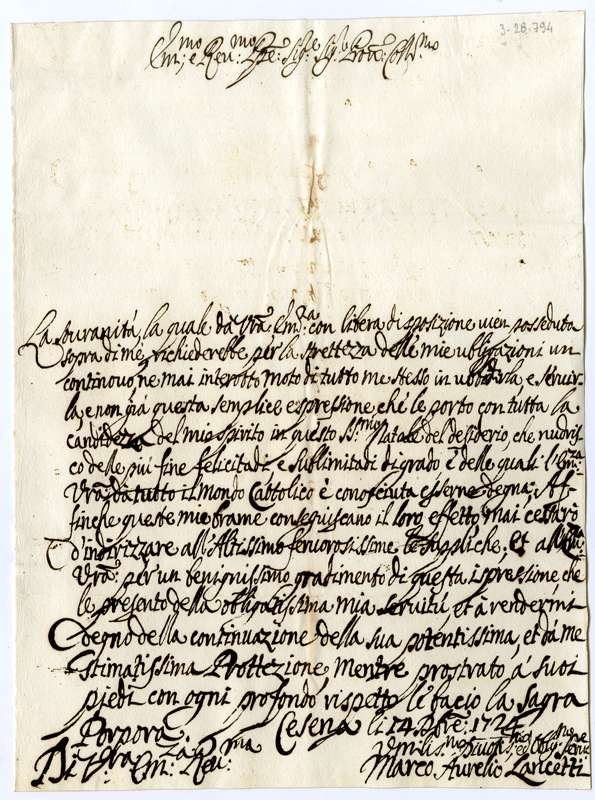 3-28-794
Em:mo e Rev:mo Pre: Sig:e Sig:e Pron: Coll:mo
La Sovranitá, la quale da Vrã: Em:za con libera disposizione vien posseduta
sopra di me, richiederebbe per la strettezza delle mie obligazioni un
continovo, ne mai interotto moto di tutto me stesso in ubbidirla, e servir-
la, e non giá questa semplice espressione, che le porto con tutta la
candidezza del mio spirito in questo S:mo Natale del desiderio, che nudris-
co delle piú fine felicitadi, e sublimitadi di grado é delle quali l'Em:za
Vrã: da tutto il Mondo Cattolico é conosciuta esserne degna: Af-
finche queste mie brame conseguiscano il loro effetto mai cessaró
d'indirizzare all'Altissimo fervorosissime le suppliche, et all'Em:za
Vrã: per un benignissimo gradimento di questa ispressione, che
le presento della obligatissima mia servitú, et á rendermi
degno della continuazione della sua potentissima, et dá me
stimatissima Prottezione mentre prostrato á suoi
piedi con ogni profondo rispetto le bacio la Sagra
Porpora. Cesena li 14. Xbre: 1724
Di V:ra Em:za Rev:ma
Vmilis:mo Divotis:mo ed Oblig:mo Serve
Marco Aurelio Lancetti